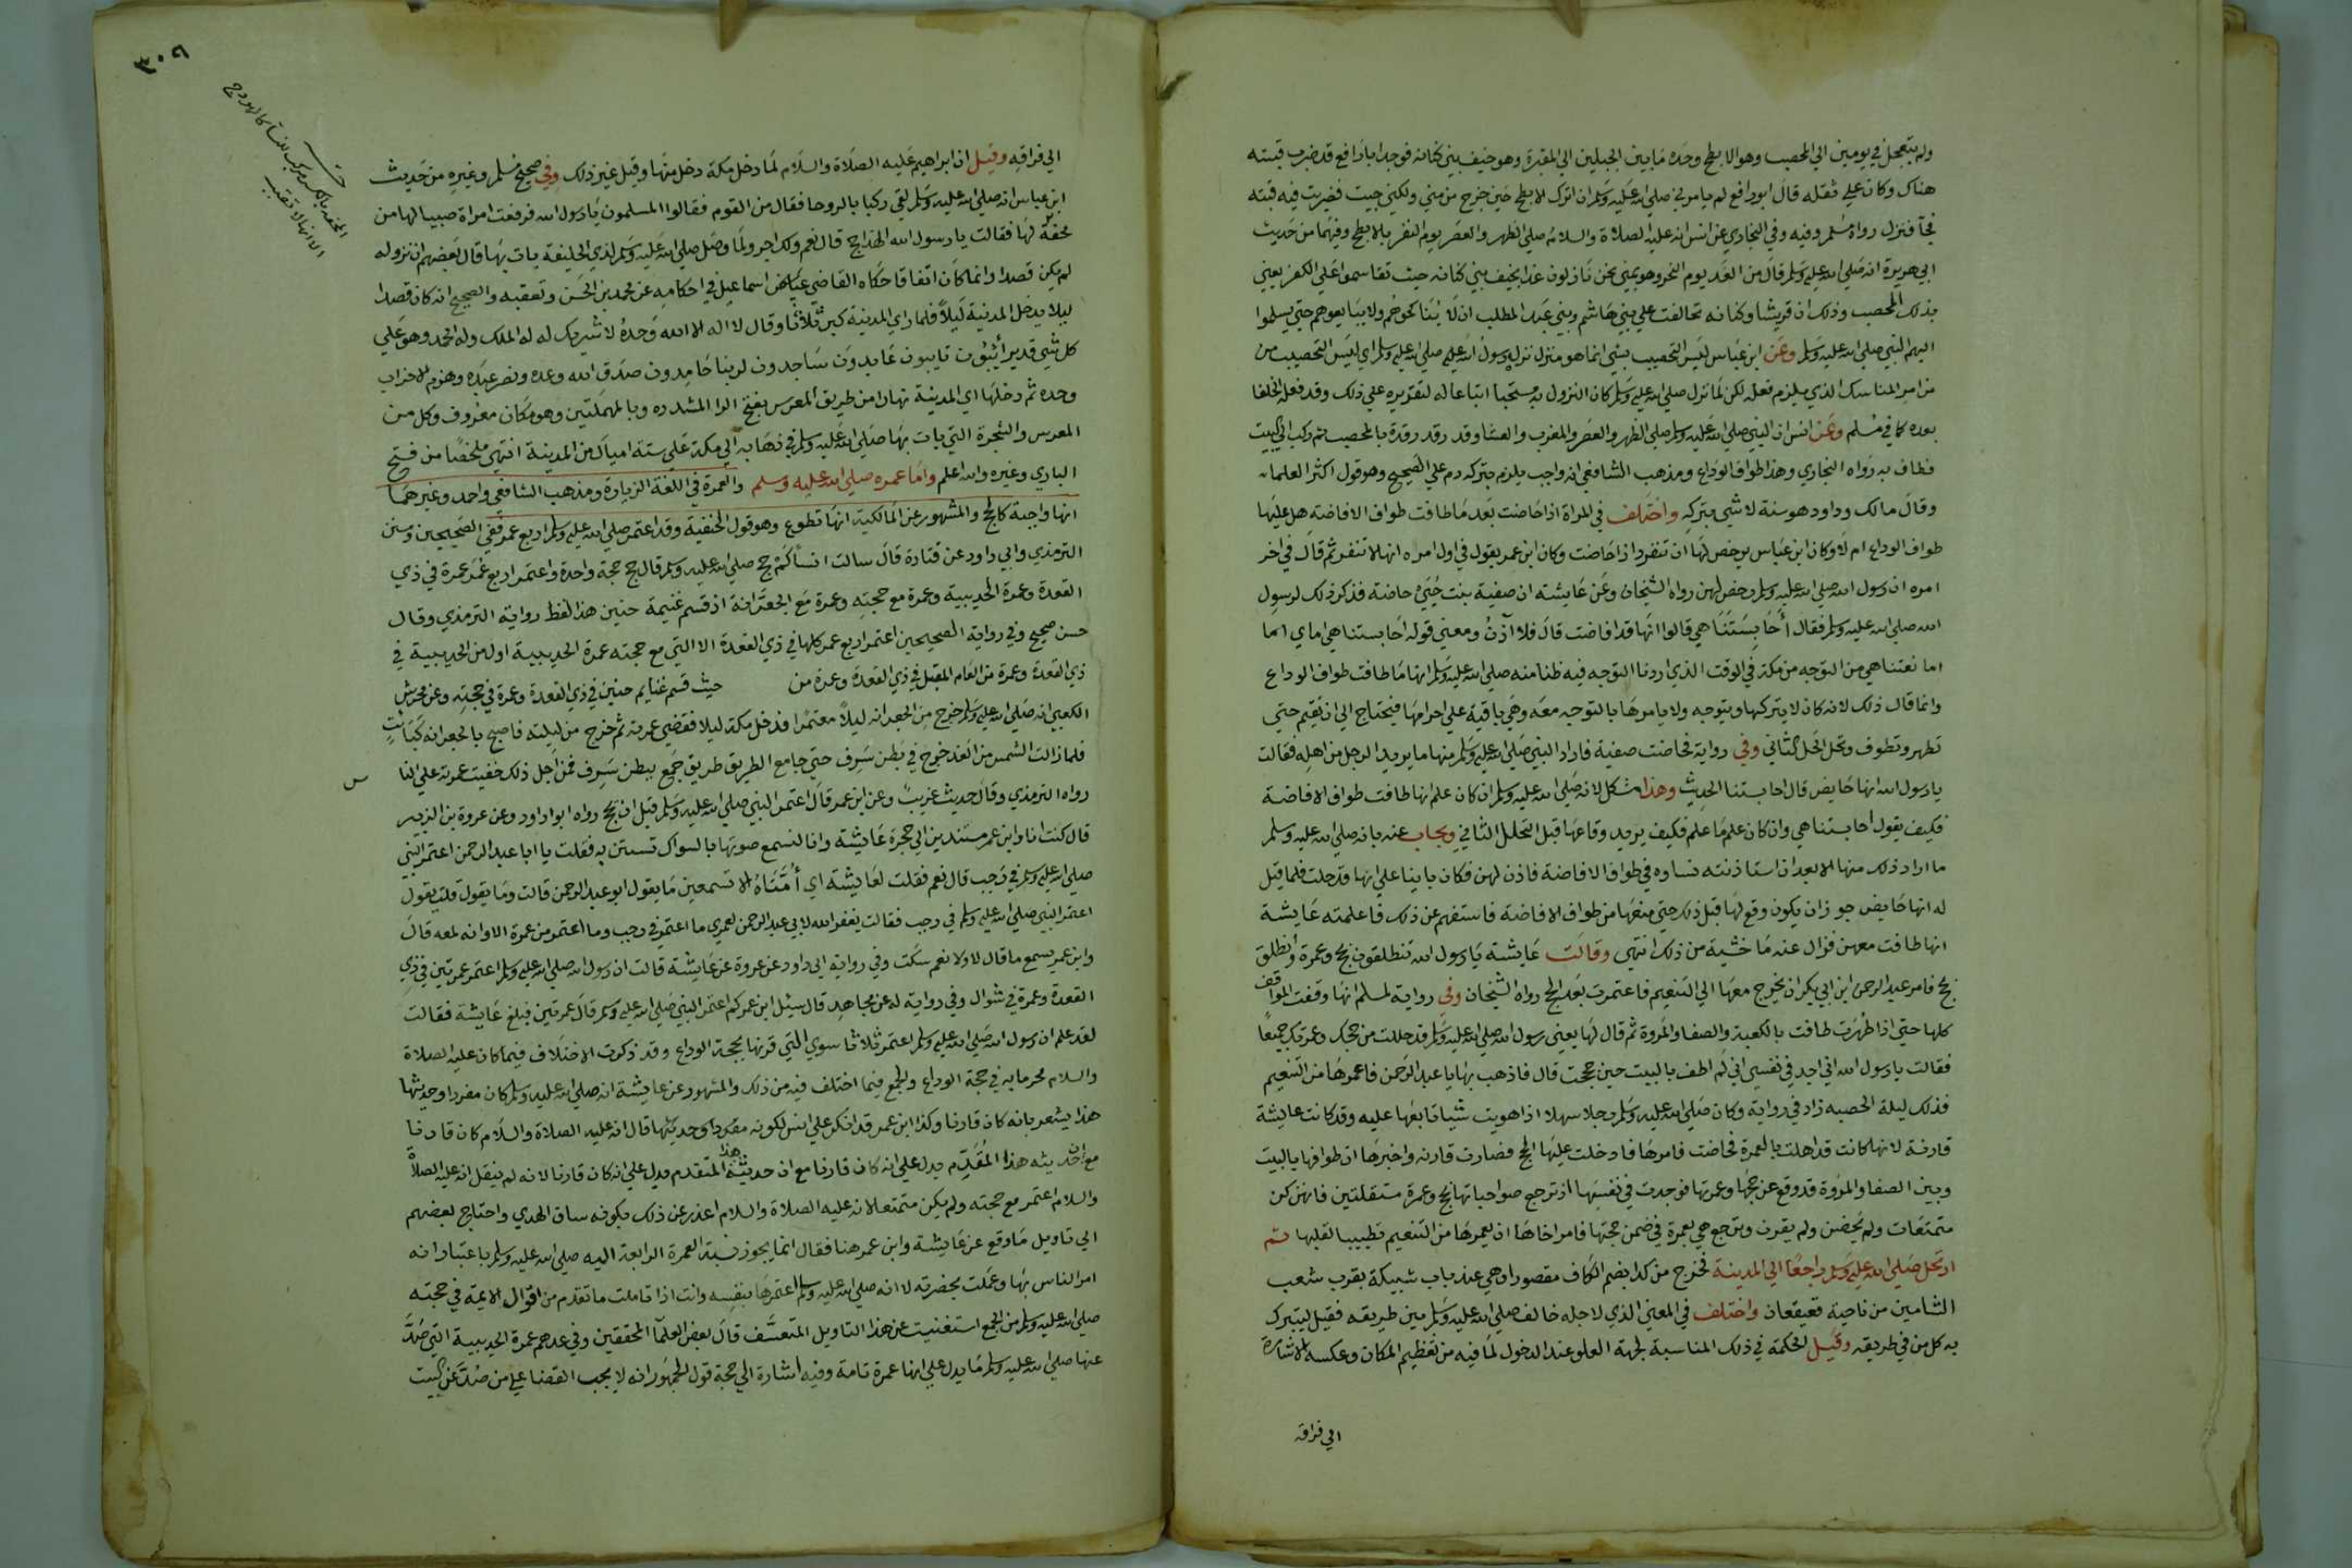 ولم يتعجل في يومين الي المحصب وهو الابطح وحده مابين الجبلين الي المقبرة وهو خيف بني كنانة فوجد ابا رافع قد ضرب قبته
هناك وكان علي ثقله قال ابو رافع لم يامرني صلي الله عليه وسلم ان انزل الابطح حين خرج من مني ولكني جيت فضربت فيه قبته
فجآ فنزل رواه مسلم وفيه وفي البخاري عن انس انه عليه الصلاة والسلام صلي الظهر والعصر يوم النفر بالابطح وفيهما من حديث
ابي هريرة انه صلي الله عليه وسلم قال من الغد يوم النحر وهو بمني نحن نازلون غدا بخيف بني كنانه حيث تقاسموا علي الكفر يعني
بذلك المحصب وذلك ان قريشا وكنانه تحالفت علي بني هاشم وبني عبد المطلب ان لا يناكحوهم ولا يبايعوهم حتي يسلموا
اليهم النبي صلي الله عليه وسلم وعن ابن عباس ليس التحصيب بشي انما هو منزل نزله رسول الله صلي الله عليه وسلم اي ليس التحصيب من
من امر المناسك الذي يلزم فعله لكن لما نزل صلي الله عليه وسلم كان النزول به مستحبا اتباعا له لتقريره علي ذلك وقد فعله الخلفا
بعده كما في مسلم وعن انس ان النبي صلي الله عليه وسلم صلي الظهر والعصر والمغرب والعشا وقد رقد رقدة بالمحصب ثم ركب الي البيت
فطاف به رواه البخاري وهذا طواف الوداع ومذهب الشافعي انه واجب يلزم بتركه دم علي الصحيح وهو قول اكثر العلماء
وقال مالك وداود هو سنة لا شي بتركه واختلف في المراة اذا حاضت بعد ما طافت طواف الافاضه هل عليها
طواف الوداع ام لا وكان ابن عباس يرخص لها ان تنفرد اذا حاضت وكان ابن عمر يقول في اول امره انها لا تنفر ثم قال في اخر
امره ان رسول الله صلي الله عليه وسلم رخص لهن رواه الشيخان وعن عايشه ان صفية بنت حيي حاضة فذكر ذلك لرسول
الله صلي الله عليه وسلم فقال أحابستنا هي قالوا انها قد افاضت قال فلا آذن ومعني قوله احابستنا هي اماي اما
اما نعتنا هي من التوجه من مكة في الوقت الذي اردنا التوجه فيه ظنا منه صلي الله عليه وسلم انها ما طافت طواف الوداع
وانما قال ذلك لانه كان لا يتركها ويتوجه ولا يامرها بالتوجه معه وهي باقية علي احرامها فيحتاج الي ان يقيم حتي
تطهر وتطوف وتحل الحل الثاني وفي رواية فحاضت صفية فاراد النبي صلي الله عليه وسلم منها ما يريد الرجل من اهله فقالت
يا رسول الله انها حايض قال احابستنا الحديث وهذا مشكل لانه صلي الله عليه وسلم ان كان علم انها طافت طواف الافاضة
فكيف يقول احابستنا هي وان كان علم ما علم فكيف يريد وقاعها قبل التحلل الثاني ويجاب عنه بانه صلي الله عليه وسلم
ما اراد ذلك منها الا بعد ان استاذنته نساوه في طواف الافاضة فاذن لهن فكان بانيا علي انها قد حلت فلما قيل
له انها حايض جوز ان يكون وقع لها قبل ذلك حتي منعها من طواف الافاضة فاستفهم عن ذلك فاعلمته عايشة
انها طافت معهن فزال عنه ما خشيه من ذلك انتهي وقالت عايشة يا رسول الله تنطلقون بحج وعمرة وأنطلق
بحج فامر عبد الرحمن ابن ابي بكر ان يخرج معها الي التنعيم فاعتمرت بعد الحج رواه الشيخان وفي رواية لمسلم انها وقفت المواقف
كلها حتي اذا طهرت طافت بالكعبة والصفا والمروة ثم قال لها يعني رسول الله صلي الله عليه وسلم قد حللت من حجك وعمرتك جميعا
فقالت يا رسول الله اني اجد في نفسي اني لم اطف بالبيت حين حججت قال فاذهب بها يا عبد الرحمن فاعمرها من التنعيم
فذلك ليلة الحصبه زاد في رواية وكان صلي الله عليه وسلم رجلا سهلا اذا هويت شيئا تابعها عليه وقد كانت عايشة
قارنة لانها كانت قد اهلت بالعمرة فحاضت فامرها فادخلت عليها الحج فصارت قارنه واخبرها ان طوافها بالبيت
وبين الصفا والمروة قد وقع عن حجها وعمرتها فوجدت في نفسها اذ ترجع صواحباتها بحج وعمرة مستقلتين فانهن كن
متمتعات ولم يحضن ولم يقرن وترجع هي بعمرة في ضمن حجتها فامر اخاها ان يعمرها من التنعيم تطييبا لقلبها ثم
ارتحل صلي الله عليه وسلم راجعا الي المدينة فخرج من كدا بضم الكاف مقصورا وهي عند باب شبيكة بقرب شعب
الشامين من ناحية قعيقعان واختلف في المعني الذي لاجله خالف صلي الله عليه وسلم بين طريقه فقيل ليتبرك
به كل من في طريقه وقيل الحكمة في ذلك المناسبة لجهة العلو عند الدخول لما فيه من تعظيم المكان وعكسه الاشارة
الي فراقه
٣٠٩
الي فراقه وقيل ان ابراهيم عليه الصلاة والسلام لما دخل مكة دخل منها وقيل غير ذلك وفي صحيح مسلم وغيره من حديث
ابن عباس انه صلي الله عليه وسلم لقي ركبا بالروحا فقال من القوم فقالوا المسلمون يا رسول الله فرفعت امراة صبيا لها من
محفة لها فقالت يا رسول الله الهذا حج قال نعم ولك اجر ولما وصل صلي الله عليه وسلم لذي الحليفة بات بها قال بعضهم ان نزوله
لم يكن قصدا وانما كان اتفاقا حكاه القاضي عياض اسماعيل في احكامه عن محمد بن الحسن وتعقبه والصحيح انه كان قصدا
ليلا يدخل المدينة ليلا فلما راي المدينة كبر ثلاثا وقال لا اله الا الله وحده لا شريك له له الملك وله الحمد وهو علي
كل شي قدير آئبون تايبون عابدون ساجدون لربنا حامدون صدق الله وعده ونصر عبده وهزم الاحزاب
وحده ثم دخلها اي المدينة نهارا من طريق المعرس بفتح الرا المشدده وبالمهملتين وهو مكان معروف وكل من
المعرس والشجرة التي بات بها صلي الله عليه وسلم في ذهابه الي مكة علي ستة اميال من المدينة انتهي ملخصا من فتح
الباري وغيره والله اعلم واما عمره صلي الله عليه وسلم والعمرة في اللغة الزيادة ومذهب الشافعي واحد وغيرهما
انها واجبة كالحج والمشهور عن المالكية انها تطوع وهو قول الحنفية وقد اعتمر صلي الله عليه وسلم اربع عمر ففي الصحيحين وسنن
الترمذي وابي داود عن قتادة قال سالت انسا كم حج صلي الله عليه وسلم قال حج حجة واحدة واعتمر اربع عمر عمرة في ذي
القعدة وعمرة الحديبية وعمرة مع حجته وعمرة مع الجعرانة اذ قسم غنيمة حنين هذا لفظ رواية الترمذي وقال
حسن صحيح وفي رواية الصحيحين اعتمر اربع عمر كلها في ذي القعدة الا التي مع حجته عمرة الحديبية او من الحديبية في
ذي القعدة وعمرة من العام المقبل في ذي القعدة وعمرة من حيث قسم غنايم حنين في ذي القعدة وعمرة في حجته وعن محرش
الكعبي انه صلي الله عليه وسلم خرج من الجعرانه ليلا معتمرا فدخل مكة ليلا فقضي عمرته ثم خرج من ليلته فاصبح بالجعرانه كبائت
فلما زالت الشمس من الغد خرج في بطن سرف حتي جامع الطريق طريق جمع ببطن سرف فمن اجل ذلك خفيت عمرته علي النا
س
رواه الترمذي وقال حديث غريب وعن ابن عمر قال اعتمر النبي صلي الله عليه وسلم قبل ان يحج رواه ابو داود وعن عروة بن الزبير
قال كنت انا وابن عمر مستندين الي حجرة عايشة وانا لنسمع صوتها بالسواك تستن به فقلت يا ابا عبد الرحمن اعتمر النبي
صلي الله عليه وسلم في رجب قال نعم فقلت لعايشة اي أمتاه الا تسمعين ما يقول ابو عبد الرحمن قالت وما يقول قلت يقول
اعتمر النبي صلي الله عليه وسلم في رجب فقالت يغفر الله لابي عبد الرحمن لعمري ما اعتمر في رجب وما اعتمر من عمرة الا وانه لمعه قال
وابن عمر يسمع ما قال لا ولا نعم سكت وفي رواية ابي داود عن عروة عن عايشة قالت ان رسول الله صلي الله عليه وسلم اعتمر عمرتين في ذي
القعدة وعمرة في شوال وفي رواية له عن مجاهد قال سئل ابن عمر كم اعتمر النبي صلي الله عليه وسلم قال عمرتين فبلغ عايشة فقالت
لقد علم ان رسول الله صلي الله عليه وسلم اعتمر ثلاثا سوي التي قرنها بحجة الوداع وقد ذكرت الاختلاف فيما كان عليه الصلاة
والسلام محرما به في حجة الوداع والجمع فيما اختلف فيه من ذلك والمشهور عن عايشة انه صلي الله عليه وسلم كان مفردا وحديثها
هذا يشعر بانه كان قارنا وكذا ابن عمر قد انكر علي انس لكونه مفردا وحديثها قال انه عليه الصلاة والسلام كان قارنا
مع ان حديثه هذا المقدم يدل علي انه كان قارنا مع ان حديثه هذا المتقدم يدل علي انه كان قارنا لانه لم ينقل انه عليه الصلاة
والسلام اعتمر مع حجته ولم يكن متمتعا لانه عليه الصلاة والسلام اعذر عن ذلك بكونه ساق الهدي واحتاج بعضهم
الي تاويل ما وقع عن عايشة وابن عمر هنا فقال انما يجوز نسبة العمرة الرابعة اليه صلي الله عليه وسلم باعتبار انه
امر الناس بها وعملت بحضرته لا انه صلي الله عليه وسلم اعتمرها بنفسه وانت اذا تاملت ما تقدم من اقوال الايمة في حجته
صلي الله عليه وسلم من الجمع استغنيت عن هذا التاويل المتعسف قال بعض العلمآ المحققين وفي عدهم عمرة الحديبية التي صد
عنها صلي الله عليه وسلم ما يدل علي انها عمرة تامة وفيه اشارة الي حجة قول الجمهور انه لا يجب القضا علي من صد عن البيت
المحفه بالكسر مركب للنسآ كالهودج
الا انها لا تقبب